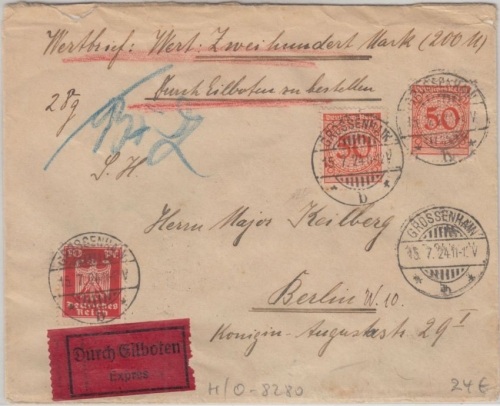 Wertbrief: Wert: Zweihundert Mark (200 M)
Durch Eilboten zu bestellen
28g
S. H.
50
GROSSENHAIN
15.7.24 11-12 V
b
Herrn Major Keilberg
GROSSENHAIN
15.7.24 11-12 V
b
Deutsches
Reich
Berlin W. 10.
Königin-Augustastr. 29 I
Durch Eilboten
Exprès
H/O-8280
24€